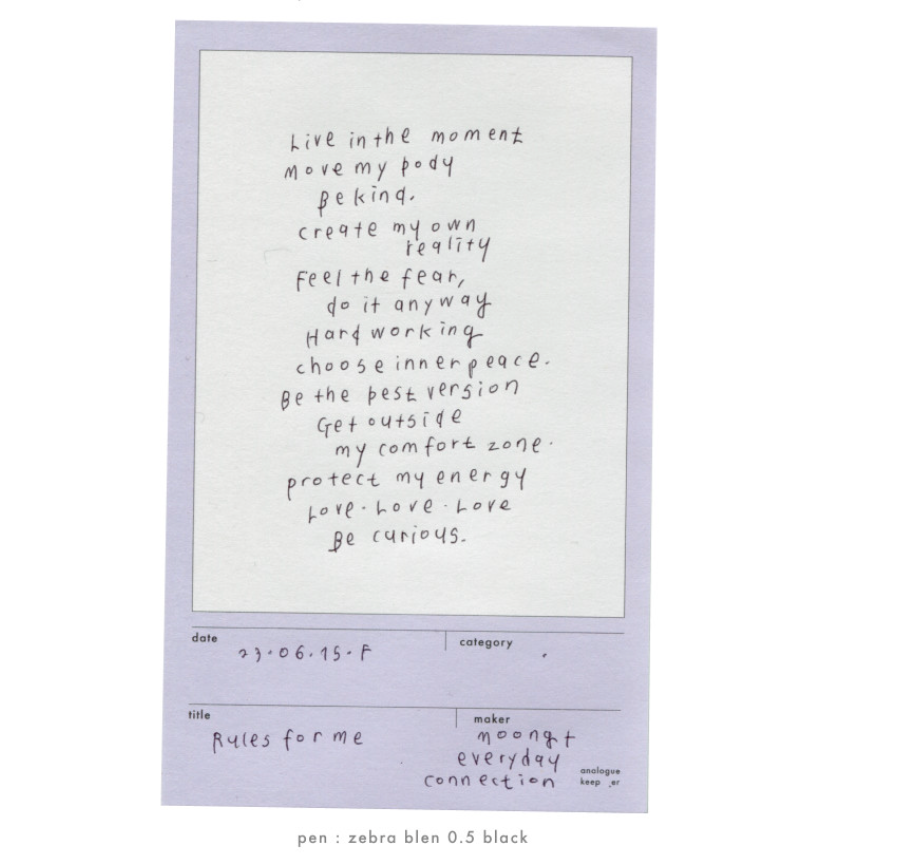 Live in the moment
Move my body
Be kind.
create my own
reality
Feel the fear,
do it anyway
Hard working
choose inner peace.
Be the best version
Get outside
my comfort zone.
protect my energy
Love. Love. Love
Be curious.
date
category
23.06.15.F
title
maker
Rules for me
everyday
connection
analogue
keep er
pen : zebra blen 0.5 black